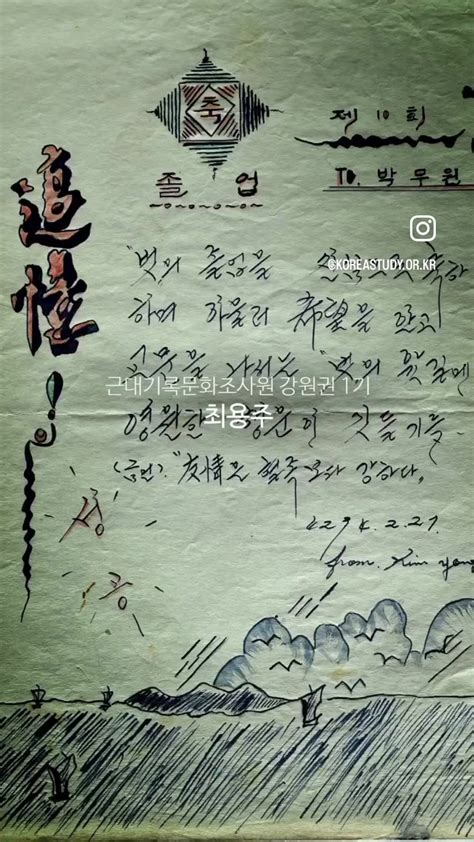 축
졸업
제 10 회
TO. 박무원
追憶!
@KOREASTUDY.OR.KR
"벗의 졸업을 축하
하며 아울러 希望을 안고
교문을 나서는 "벗의 앞길에
영원한 행운이 깃들기를
(금언) "友情은 혈족보다 강하다.
근대기록문화조사원 강원권 1기
최용주
성공
4294.2.27.
from. Kim yong